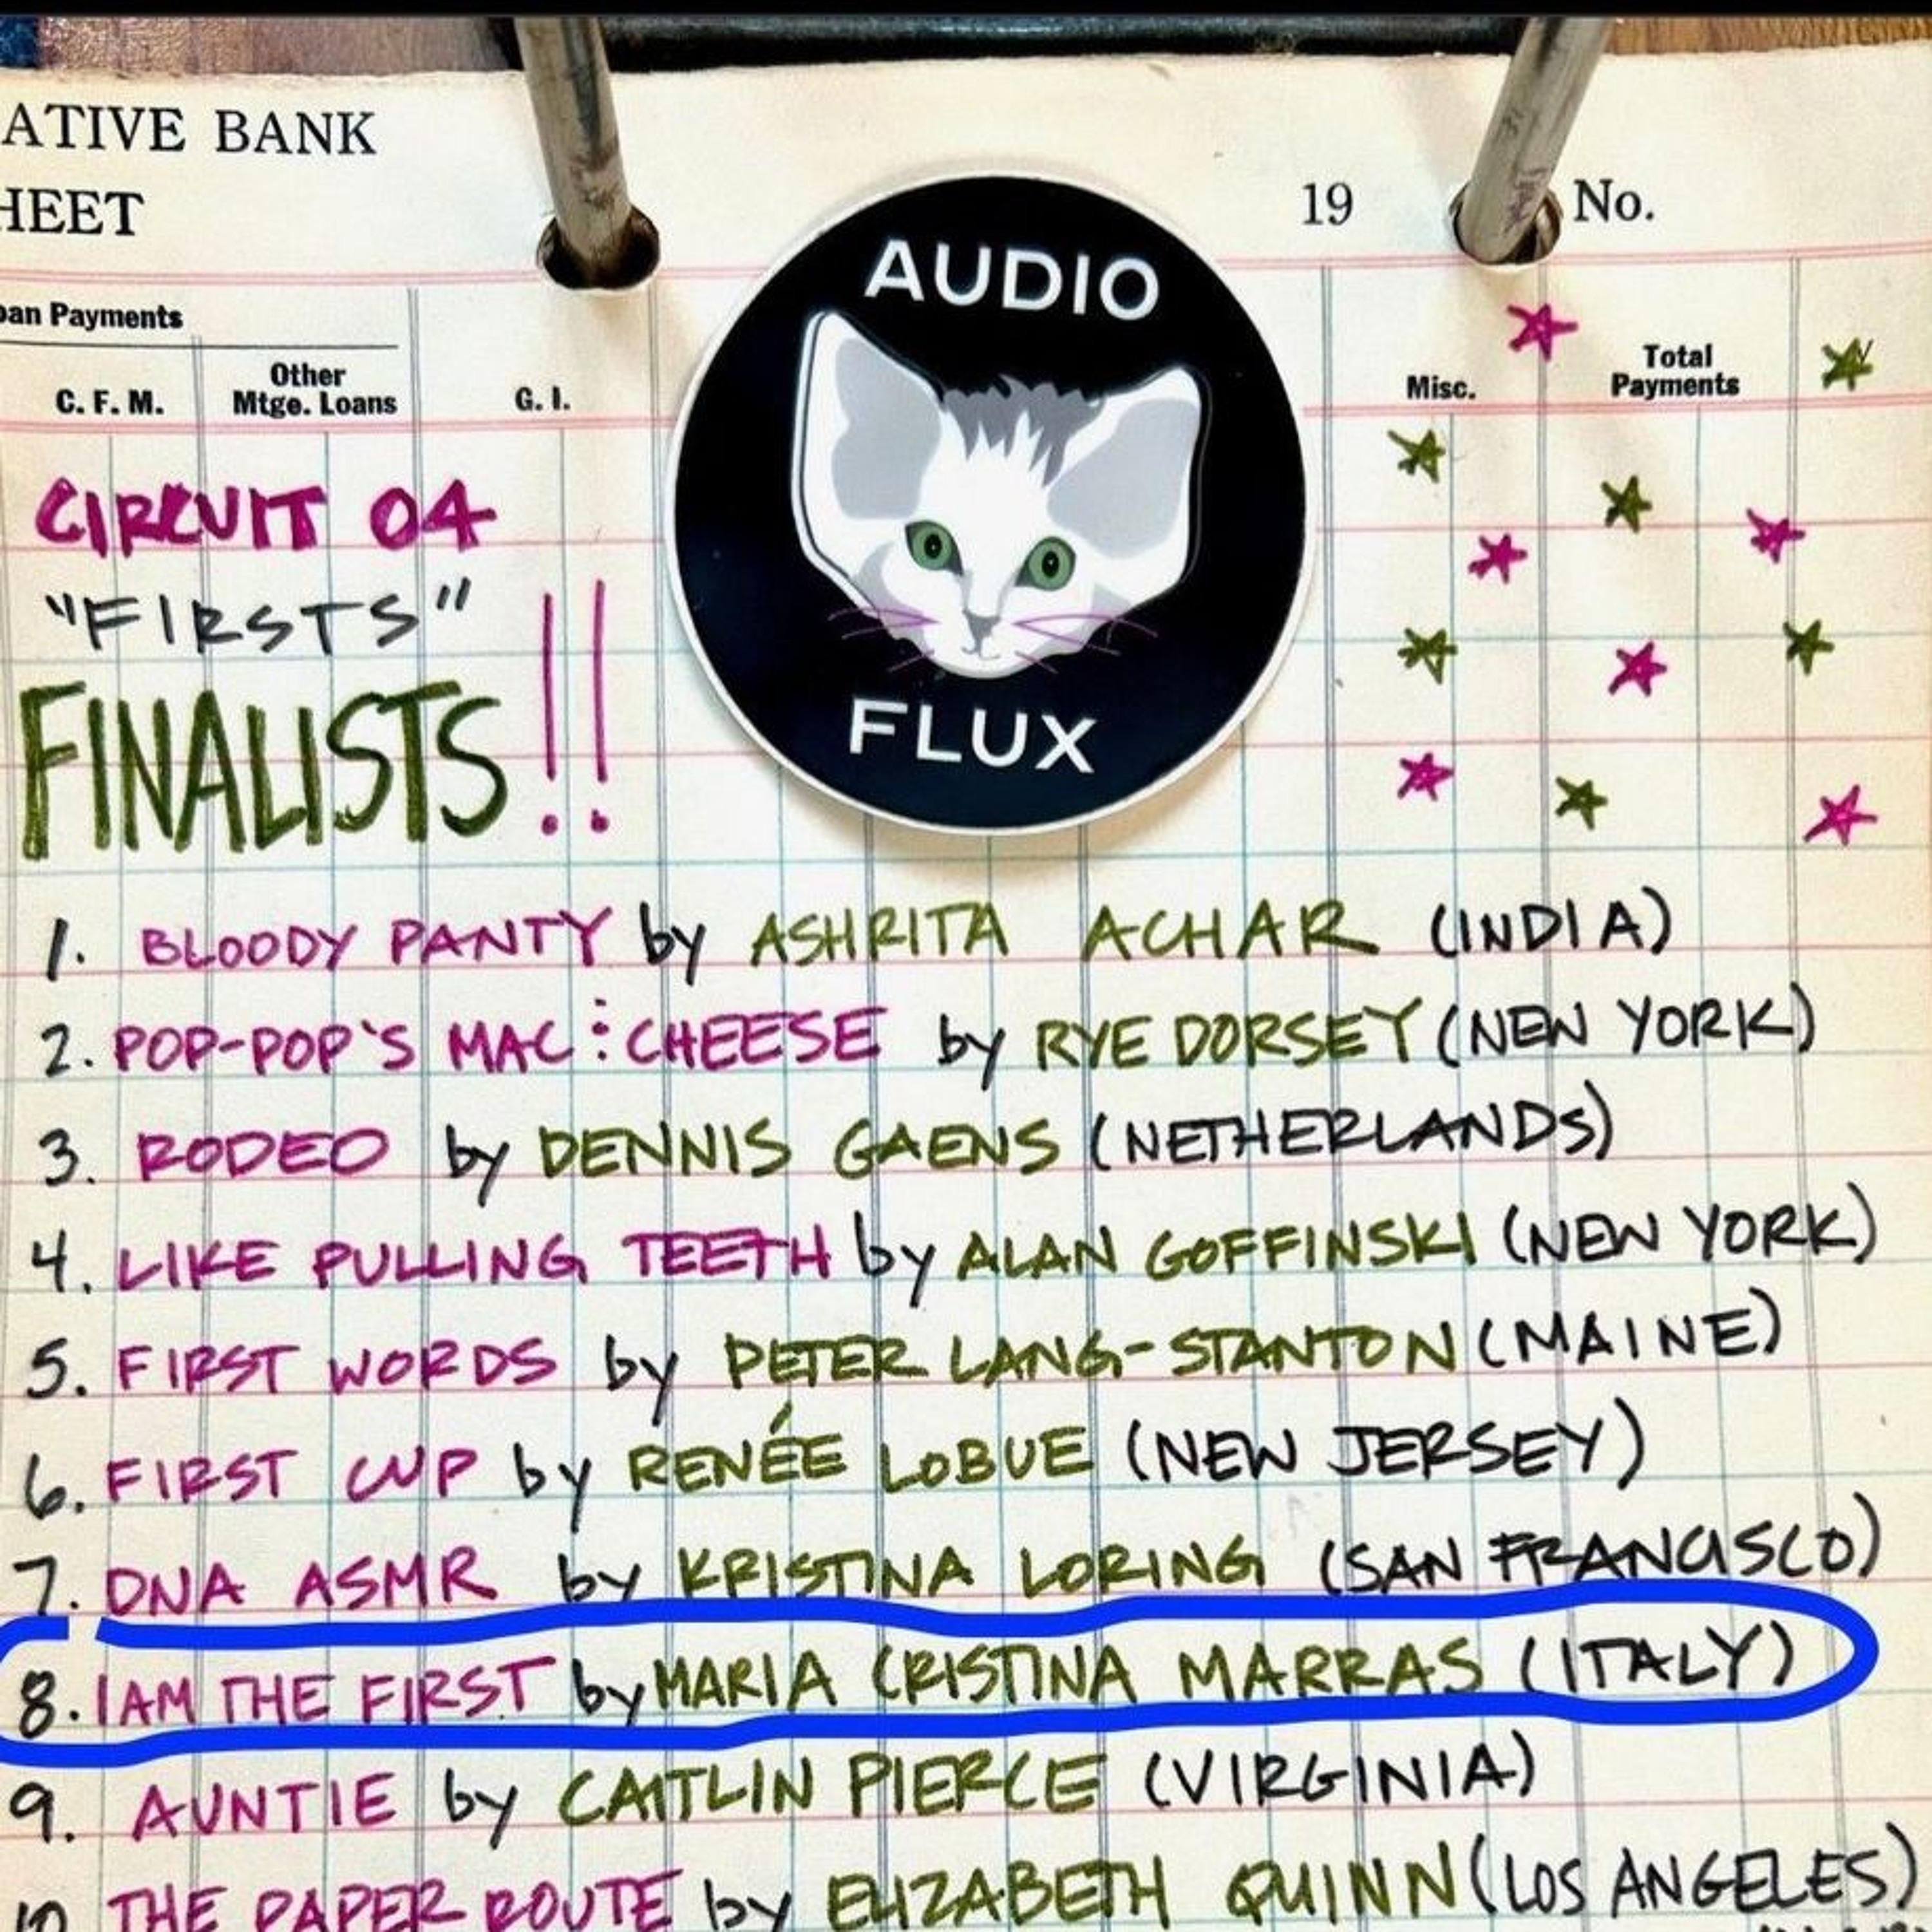 ATIVE BANK
HEET
19 No.
oan Payments
C. F. M.
Other
Mtge. Loans
G. I.
Misc.
Total
Payments
AUDIO
FLUX
CIRCUIT 04
"FIRSTS"
FINALISTS!!
1. BLOODY PANTY by ASHRITA ACHAR (INDIA)
2. POP-POP'S MAC ⋮ CHEESE by RYE DORSEY (NEW YORK)
3. RODEO by DENNIS GAENS (NETHERLANDS)
4. LIKE PULLING TEETH by ALAN GOFFINSKI (NEW YORK)
5. FIRST WORDS by PETER LANG-STANTON (MAINE)
6. FIRST CUP by RENÉE LOBUE (NEW JERSEY)
7. DNA ASMR by KRISTINA LORING (SAN FRANCISCO)
8. I AM THE FIRST by MARIA CRISTINA MARRAS (ITALY)
9. AUNTIE by CAITLIN PIERCE (VIRGINIA)
10. THE PAPER ROUTE by ELIZABETH QUINN (LOS ANGELES)